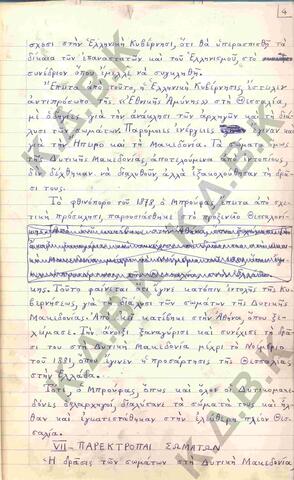 4
σχεση στὴν Ἑλληνικὴ Κυβέρνησι, ὅτι θὰ ὑπερασπισθῇ τὰ
δίκαια τῶν ἐπαναστατῶν καὶ τοῦ Ἑλληνισμοῦ, στὸ
συνέδριον ὅπου ἔμελλε νὰ συγκληθῇ.
Ἔπειτα ἀπὸ τοῦτο, ἡ Ἑλληνικὴ Κυβέρνησις ἔστειλεν
ἀντιπρόσωπο τῆς «Ἐθνικῆς Ἀμύνης» στὴ Θεσσαλία,
μὲ ὁδηγίες γιὰ τὴν ἀνάκλησι τῶν ἀρχηγῶν καὶ τὴ διά-
λυσι τῶν σωμάτων. Παρόμοιες ἐνέργειες ἔγιναν καὶ
γιὰ τὴν Ἤπειρο καὶ τὴ Μακεδονία. Τὰ σώματα ὅμως
τῆς Δυτικῆς Μακεδονίας, ἀποτελούμενα ἀπὸ ἐντοπίους,
δὲν δέχθηκαν νὰ διαλυθοῦν, ἀλλὰ ἐξακολούθησαν τὴ δρᾶ-
σι τους.
Τὸ φθινόπωρο τοῦ 1878, ὁ Μπρούφας, ἔπειτα ἀπὸ σχε-
τικὴ πρόσκλησι, παρουσιάσθηκε στὸ προξενεῖο Θεσσαλονί-
κης. Τοῦτο φαίνεται ὅτι ἔγινε κατόπιν ἐντολῆς τῆς Κυ-
βερνήσεως, γιὰ τὴ διάλυσι τῶν σωμάτων τῆς Δυτικῆς
Μακεδονίας. Ἀπὸ ἐκεῖ κατέβηκε στὴν Ἀθήνα, ὅπου ξε-
χείμασε. Τὴν ἄνοιξι ξαναγύρισε καὶ συνέχισε τὴ δρᾶσι
του στὴ Δυτικὴ Μακεδονία μέχρι τὸ Νοέμβριο
τοῦ 1881, ὅποτε ἔγινεν ἡ προσάρτησις τῆς Θεσσαλίας
στὴν Ἑλλάδα.
Τότε ὁ Μπρούφας, ὅπως καὶ ὅλοι οἱ Δυτικομακε-
δόνες ὁπλαρχηγοί, διαλύσανε τὰ σώματά τους καὶ ἦλ-
θαν καὶ ἐγκατεστάθηκαν στὴν ἐλεύθερη πλέον Θεσ-
σαλία.
VII ΠΑΡΕΚΤΡΟΠΑΙ ΣΩΜΑΤΩΝ
Ἡ δρᾶσις τῶν σωμάτων στὴ Δυτικὴ Μακεδονία
Κ.Δ.Β.Κ